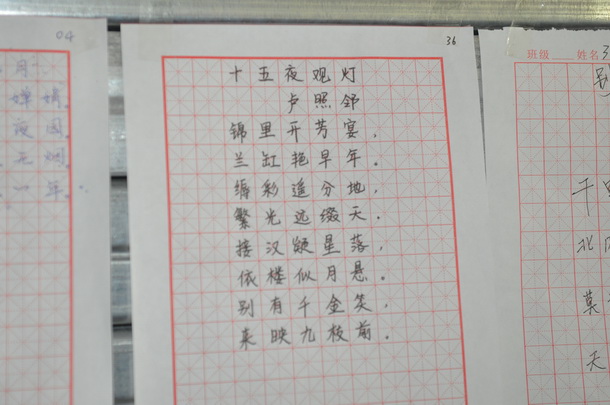 04
月
婵娟,
夜圆,
一年。
36
十五夜观灯
卢照邻
锦里开芳宴,
兰缸艳早年。
缛彩遥分地,
繁光远缀天。
接汉疑星落,
依楼似月悬。
别有千金笑,
来映九枝前。
班级 姓名
别
千里
北
莫
天